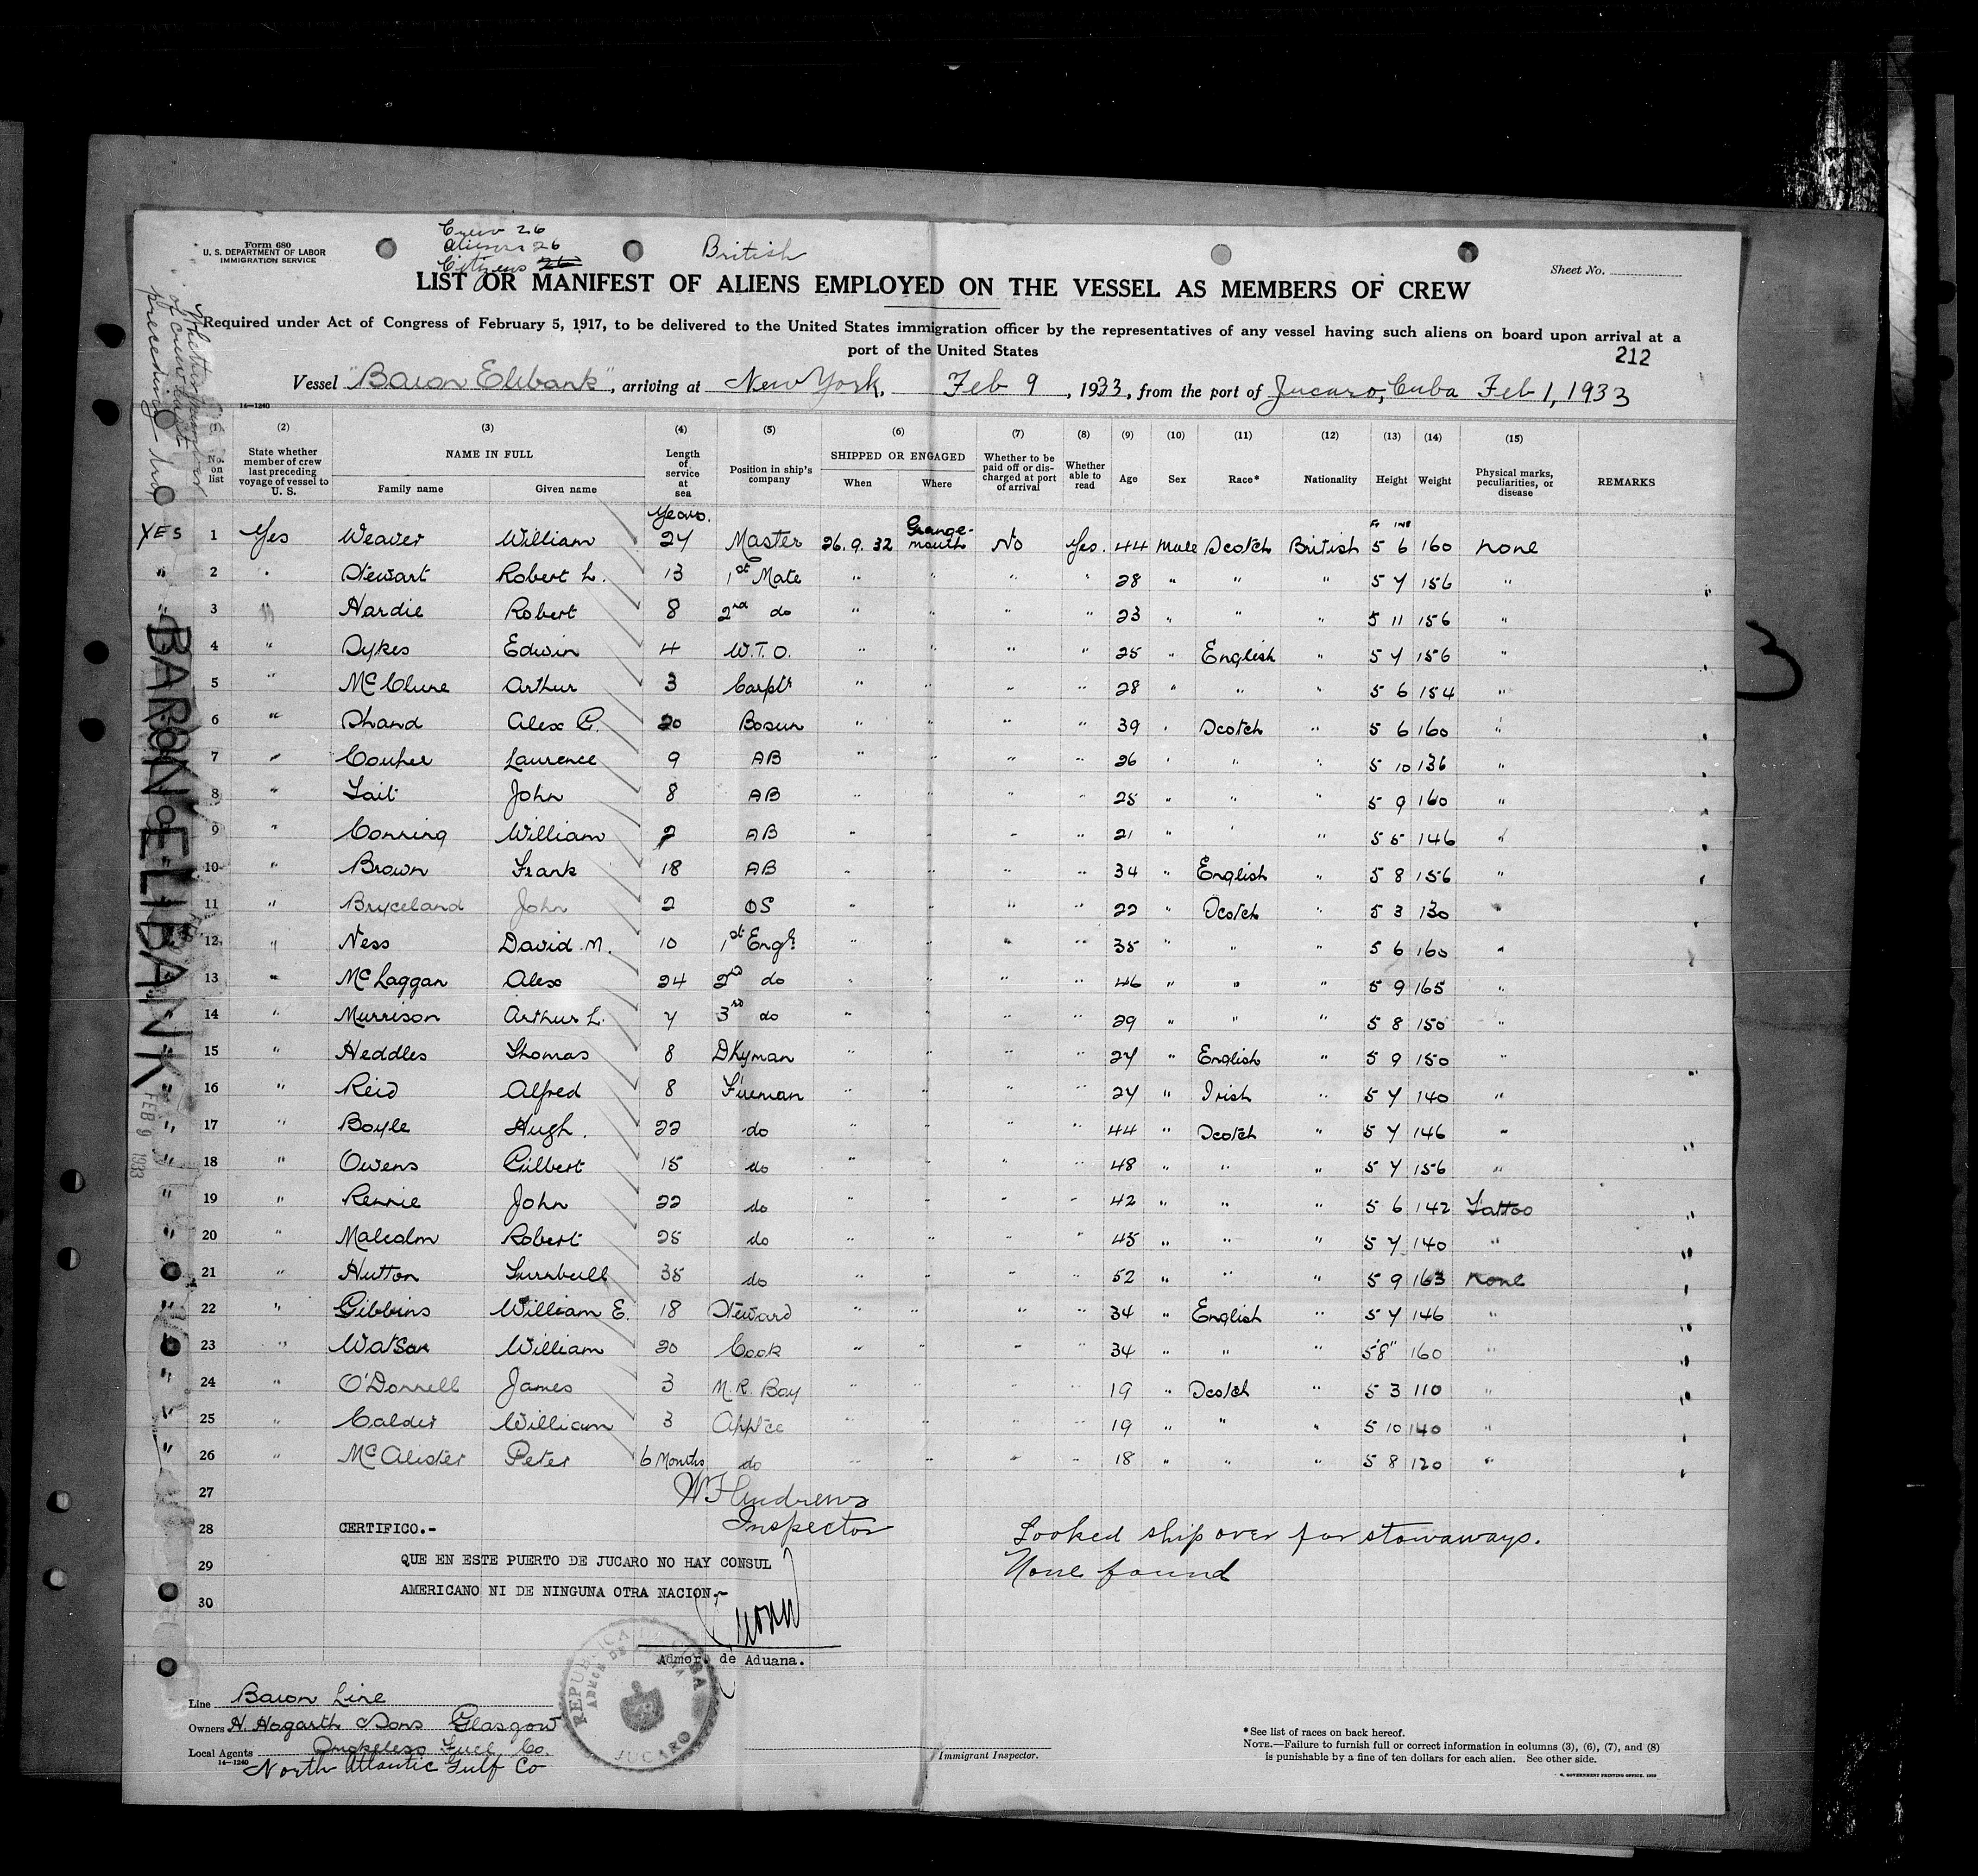 Form 680
U. S. DEPARTMENT OF LABOR
IMMIGRATION SERVICE
Crew 26
Aliens 26
Citizens 26
British
Sheet No.
LIST OR MANIFEST OF ALIENS EMPLOYED ON THE VESSEL AS MEMBERS OF CREW
Required under Act of Congress of February 5, 1917, to be delivered to the United States immigration officer by the representatives of any vessel having such aliens on board upon arrival at a
port of the United States
212
Vessel "Baron Elibank", arriving at New York, Feb 9, 1933, from the port of Jucaro, Cuba Feb 1, 1933
14—1240
(1) (2) (3) (4) (5) (6) (7) (8) (9) (10) (11) (12) (13) (14) (15)
No. on list | State whether member of crew last preceding voyage of vessel to U. S. | NAME IN FULL Family name Given name | Length of service at sea | Position in ship's company | SHIPPED OR ENGAGED When Where | Whether to be paid off or discharged at port of arrival | Whether able to read | Age | Sex | Race* | Nationality | Height | Weight | Physical marks, peculiarities, or disease | REMARKS
Years. Ft Ins
YES 1 Yes Weaver William 24 Master 26.9.32 Grangemouth No Yes. 44 Male Scotch British 5 6 160 None
" 2 " Stewart Robert L. 13 1st Mate " " " " 28 " " " 5 7 156 "
" 3 " Hardie Robert 8 2nd do " " " " 23 " " " 5 11 156 "
4 " Dykes Edwin 4 W.T.O. " " " " 25 " English " 5 7 156 "
5 " McClure Arthur 3 Carptr " " " " 28 " " " 5 6 154 "
6 " Shand Alex C. 20 Bosun " " " " 39 " Scotch " 5 6 160 "
7 " Couper Laurence 9 AB " " " " 26 " " " 5 10 136 "
8 " Tait John 8 AB " " " " 25 " " " 5 9 160 "
9 " Conning William 2 AB " " " " 21 " " " 5 5 146 "
10 " Brown Frank 18 AB " " " " 34 " English " 5 8 156 "
11 " Bryceland John 2 OS " " " " 22 " Scotch " 5 3 130 "
12 " Ness David M. 10 1st Engr " " " " 35 " " " 5 6 160 "
13 " McLaggan Alex 24 2nd do " " " " 46 " " " 5 9 165 "
14 " Murrison Arthur L. 7 3rd do " " " " 29 " " " 5 8 150 "
15 " Heddles Thomas 8 DKyman " " " " 27 " English " 5 9 150 "
16 " Reid Alfred 8 Fireman " " " " 27 " Irish " 5 7 140 "
17 " Boyle Hugh. 22 do " " " " 44 " Scotch " 5 7 146 "
18 " Owens Gilbert 15 do " " " " 48 " " " 5 7 156 "
19 " Rennie John 22 do " " " " 42 " " " 5 6 142 Tattoo
20 " Malcolm Robert 25 do " " " " 45 " " " 5 7 140 "
21 " Hutton Turnbull 35 do " " " " 52 " " " 5 9 163 None
22 " Gibbins William E. 18 Steward " " " " 34 " English " 5 7 146 "
23 " Watson William 20 Cook " " " " 34 " " " 5'8" 160 "
24 " O'Donnell James 3 M.R. Boy " " " " 19 " Scotch " 5 3 110 "
25 " Calder William 3 App'ce " " " " 19 " " " 5 10 140 "
26 " McAlister Peter 6 Months do " " " " 18 " " " 5 8 120 "
27
28
29
30
BARON ELIBANK
FEB 9 1933
3
Inspector
Looked ship over for stowaways.
None found
CERTIFICO.-
QUE EN ESTE PUERTO DE JUCARO NO HAY CONSUL
AMERICANO NI DE NINGUNA OTRA NACION.-
Admor. de Aduana.
REPUBLICA DE CUBA
JUCARO
Line Baron Line
Owners H. Hogarth & Sons Glasgow
Local Agents Smokeless Fuel Co.
14—1240
North Atlantic Gulf Co
Immigrant Inspector.
*See list of races on back hereof.
NOTE.—Failure to furnish full or correct information in columns (3), (6), (7), and (8)
is punishable by a fine of ten dollars for each alien. See other side.